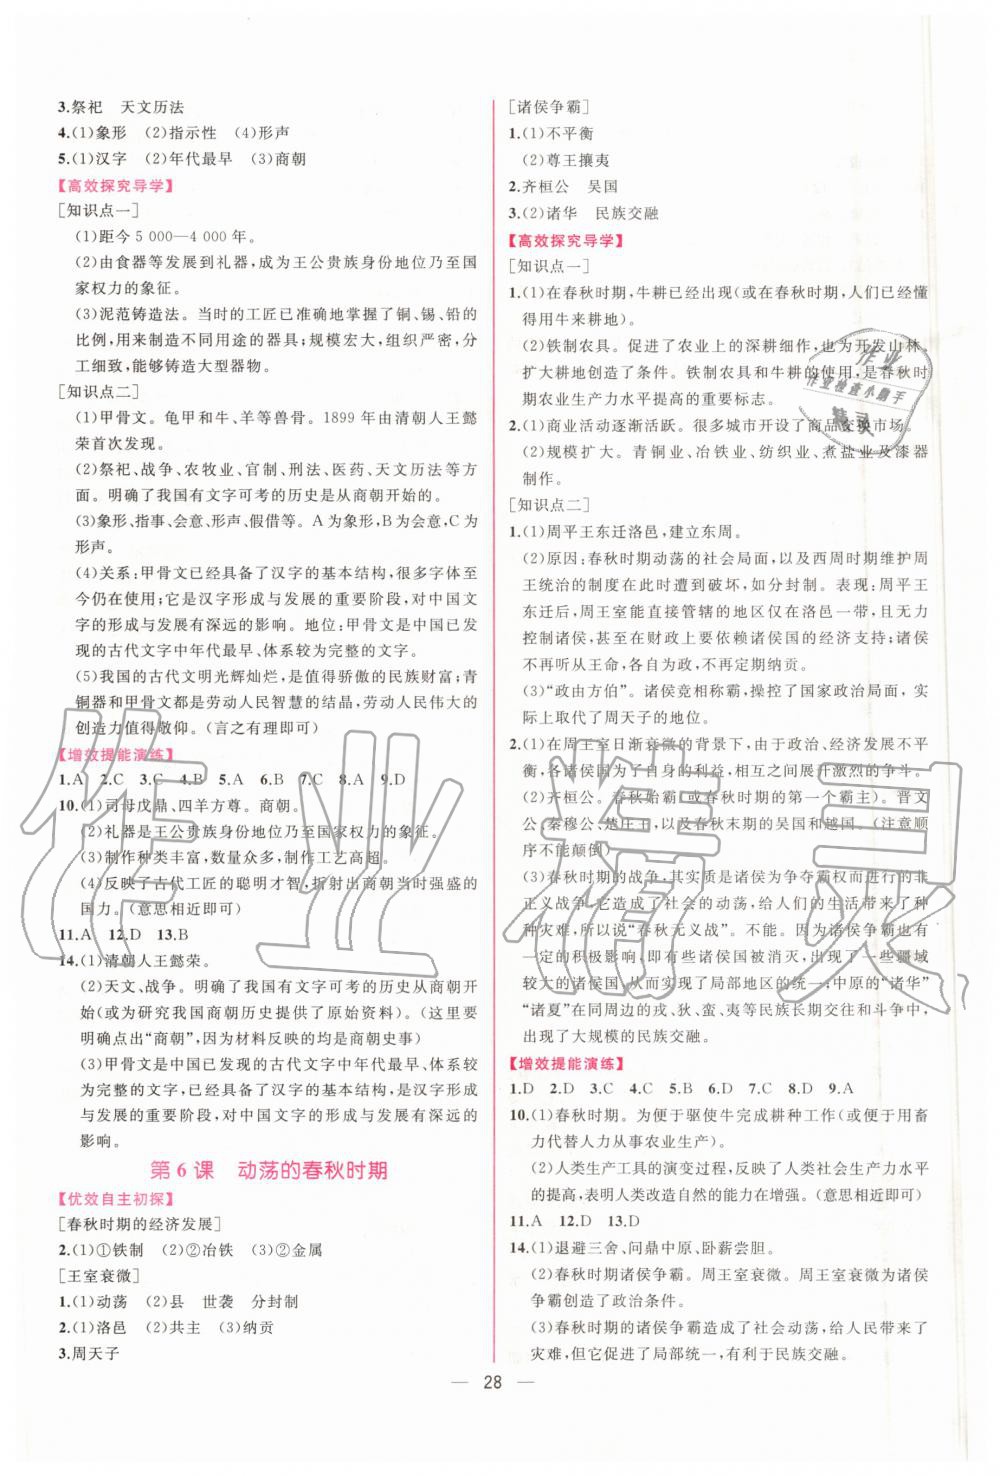 3.祭祀　天文历法
4.(1)象形　(2)指示性　(4)形声
5.(1)汉字　(2)年代最早　(3)商朝
【高效探究导学】
[知识点一]
(1)距今 5 000—4 000 年。
(2)由食器等发展到礼器,成为王公贵族身份地位乃至国
家权力的象征。
(3)泥范铸造法。当时的工匠已准确地掌握了铜、锡、铅的
比例,用来制造不同用途的器具;规模宏大,组织严密,分
工细致,能够铸造大型器物。
[知识点二]
(1)甲骨文。龟甲和牛、羊等兽骨。1899 年由清朝人王懿
荣首次发现。
(2)祭祀、战争、农牧业、官制、刑法、医药、天文历法等方
面。明确了我国有文字可考的历史是从商朝开始的。
(3)象形、指事、会意、形声、假借等。A 为象形,B 为会意,C 为
形声。
(4)关系:甲骨文已经具备了汉字的基本结构,很多字体至
今仍在使用;它是汉字形成与发展的重要阶段,对中国文
字的形成与发展有深远的影响。地位:甲骨文是中国已发
现的古代文字中年代最早、体系较为完整的文字。
(5)我国的古代文明光辉灿烂,是值得骄傲的民族财富;青
铜器和甲骨文都是劳动人民智慧的结晶,劳动人民伟大的
创造力值得敬仰。(言之有理即可)
【增效提能演练】
1.A　2.C　3.C　4.B　5.A　6.B　7.C　8.A　9.D
10.(1)司母戊鼎、四羊方尊。商朝。
(2)礼器是王公贵族身份地位乃至国家权力的象征。
(3)制作种类丰富,数量众多,制作工艺高超。
(4)反映了古代工匠的聪明才智,折射出商朝当时强盛的
国力。(意思相近即可)
11.A　12.D　13.B
14.(1)清朝人王懿荣。
(2)天文、战争。明确了我国有文字可考的历史从商朝开始
(或为研究我国商朝历史提供了原始资料)。(这里要
明确点出“商朝”,因为材料反映的均是商朝史事)
(3)甲骨文是中国已发现的古代文字中年代最早、体系较
为完整的文字,已经具备了汉字的基本结构,是汉字形成
与发展的重要阶段,对中国文字的形成与发展有深远的
影响。
第 6 课　动荡的春秋时期
【优效自主初探】
[春秋时期的经济发展]
2.(1)①铁制　(2)②冶铁　(3)②金属
[王室衰微]
1.(1)动荡　(2)县　世袭　分封制
2.(1)洛邑　(2)共主　(3)纳贡
3.周天子
[诸侯争霸]
1.(1)不平衡
(2)尊王攘夷
2.齐桓公　吴国
3.(2)诸华　民族交融
【高效探究导学】
[知识点一]
1.(1)在春秋时期,牛耕已经出现(或在春秋时期,人们已经懂
得用牛来耕地)。
(2)铁制农具。促进了农业上的深耕细作,也为开发山林、
扩大耕地创造了条件。铁制农具和牛耕的使用,是春秋时
期农业生产力水平提高的重要标志。
2.(1)商业活动逐渐活跃。很多城市开设了商品交换市场。
(2)规模扩大。青铜业、冶铁业、纺织业、煮盐业及漆器
制作。
[知识点二]
1.(1)周平王东迁洛邑,建立东周。
(2)原因:春秋时期动荡的社会局面,以及西周时期维护周
王统治的制度在此时遭到破坏,如分封制。表现:周平王
东迁后,周王室能直接管辖的地区仅在洛邑一带,且无力
控制诸侯,甚至在财政上要依赖诸侯国的经济支持;诸侯
不再听从王命,各自为政,不再定期纳贡。
(3)“政由方伯”。诸侯竞相称霸,操控了国家政治局面,实
际上取代了周天子的地位。
2.(1)在周王室日渐衰微的背景下,由于政治、经济发展不平
衡,各诸侯国为了自身的利益,相互之间展开激烈的争斗。
(2)齐桓公。春秋始霸(或春秋时期的第一个霸主)。晋文
公、秦穆公、楚庄王,以及春秋末期的吴国和越国。(注意顺
序不能颠倒)
(3)春秋时期的战争,其实质是诸侯为争夺霸权而进行的非
正义战争,它造成了社会的动荡,给人们的生活带来了种
种灾难,所以说“春秋无义战”。不能。因为诸侯争霸也有
一定的积极影响,即有些诸侯国被消灭,出现了一些疆域
较大的诸侯国,从而实现了局部地区的统一;中原的“诸华”
“诸夏”在同周边的戎、狄、蛮、夷等民族长期交往和斗争中,
出现了大规模的民族交融。
【增效提能演练】
1.D　2.D　3.C　4.C　5.D　6.C　7.D　8.D　9.A
10.(1)春秋时期。为便于驱使牛完成耕种工作(或便于用畜
力代替人力从事农业生产)。
(2)人类生产工具的演变过程,反映了人类社会生产力水平
的提高,表明人类改造自然的能力在增强。(意思相近即可)
11.A　12.D　13.D
14.(1)退避三舍、问鼎中原、卧薪尝胆。
(2)春秋时期诸侯争霸。周王室衰微。周王室衰微为诸侯
争霸创造了政治条件。
(3)春秋时期的诸侯争霸造成了社会动荡,给人民带来了
灾难,但它促进了局部统一,有利于民族交融。
— 28 —
作业精灵
作业
作业检查小助手
精灵